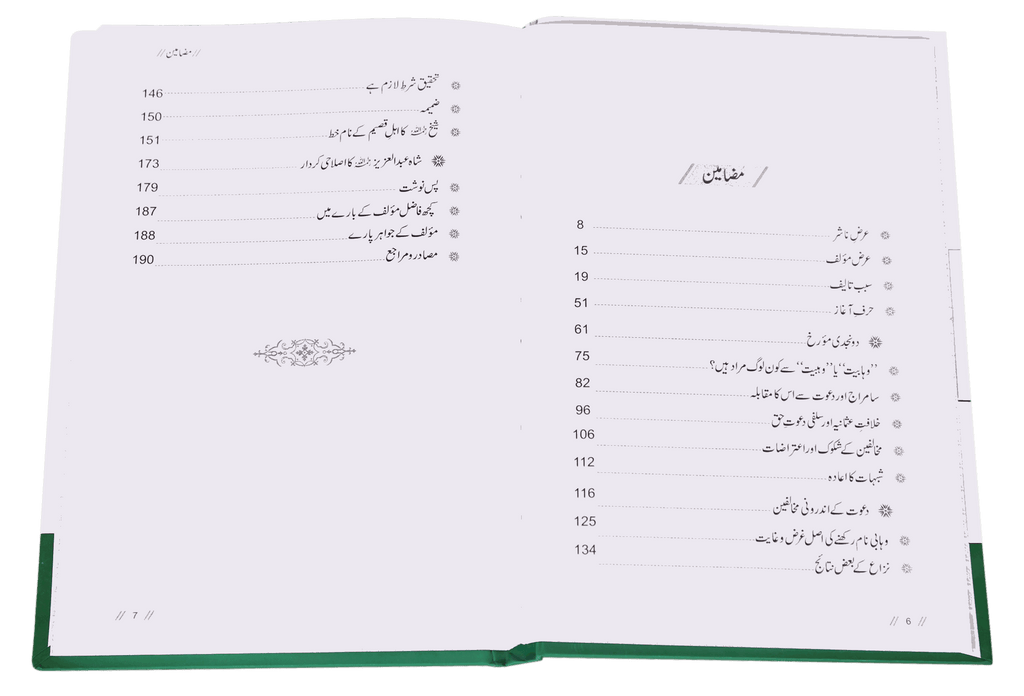 مضامین
عرض ناشر 8
عرض مؤلف 15
سبب تالیف 19
حرف آغاز 51
دو نجدی مؤرخ 61
’’وہابیت‘‘ یا ’’وہبیت‘‘ سے کون لوگ مراد ہیں؟ 75
سامراج اور دعوت سے اس کا مقابلہ 82
خلافتِ عثمانیہ اور سلفی دعوتِ حق 96
مخالفین کے شکوک اور اعتراضات 106
شبہات کا اعادہ 112
دعوت کے اندرونی مخالفین 116
وہابی نام رکھنے کی اصل غرض و غایت 125
نزاع کے بعض نتائج 134
// 6 //
// مضامین //
تحقیق شرط لازم ہے 146
ضمیمہ 150
شیخ رحمہ اللہ کا اہل قصیم کے نام خط 151
شاہ عبدالعزیز رحمہ اللہ کا اصلاحی کردار 173
پس نوشت 179
کچھ فاضل مؤلف کے بارے میں 187
مؤلف کے جواہر پارے 188
مصادر و مراجع 190
// 7 //